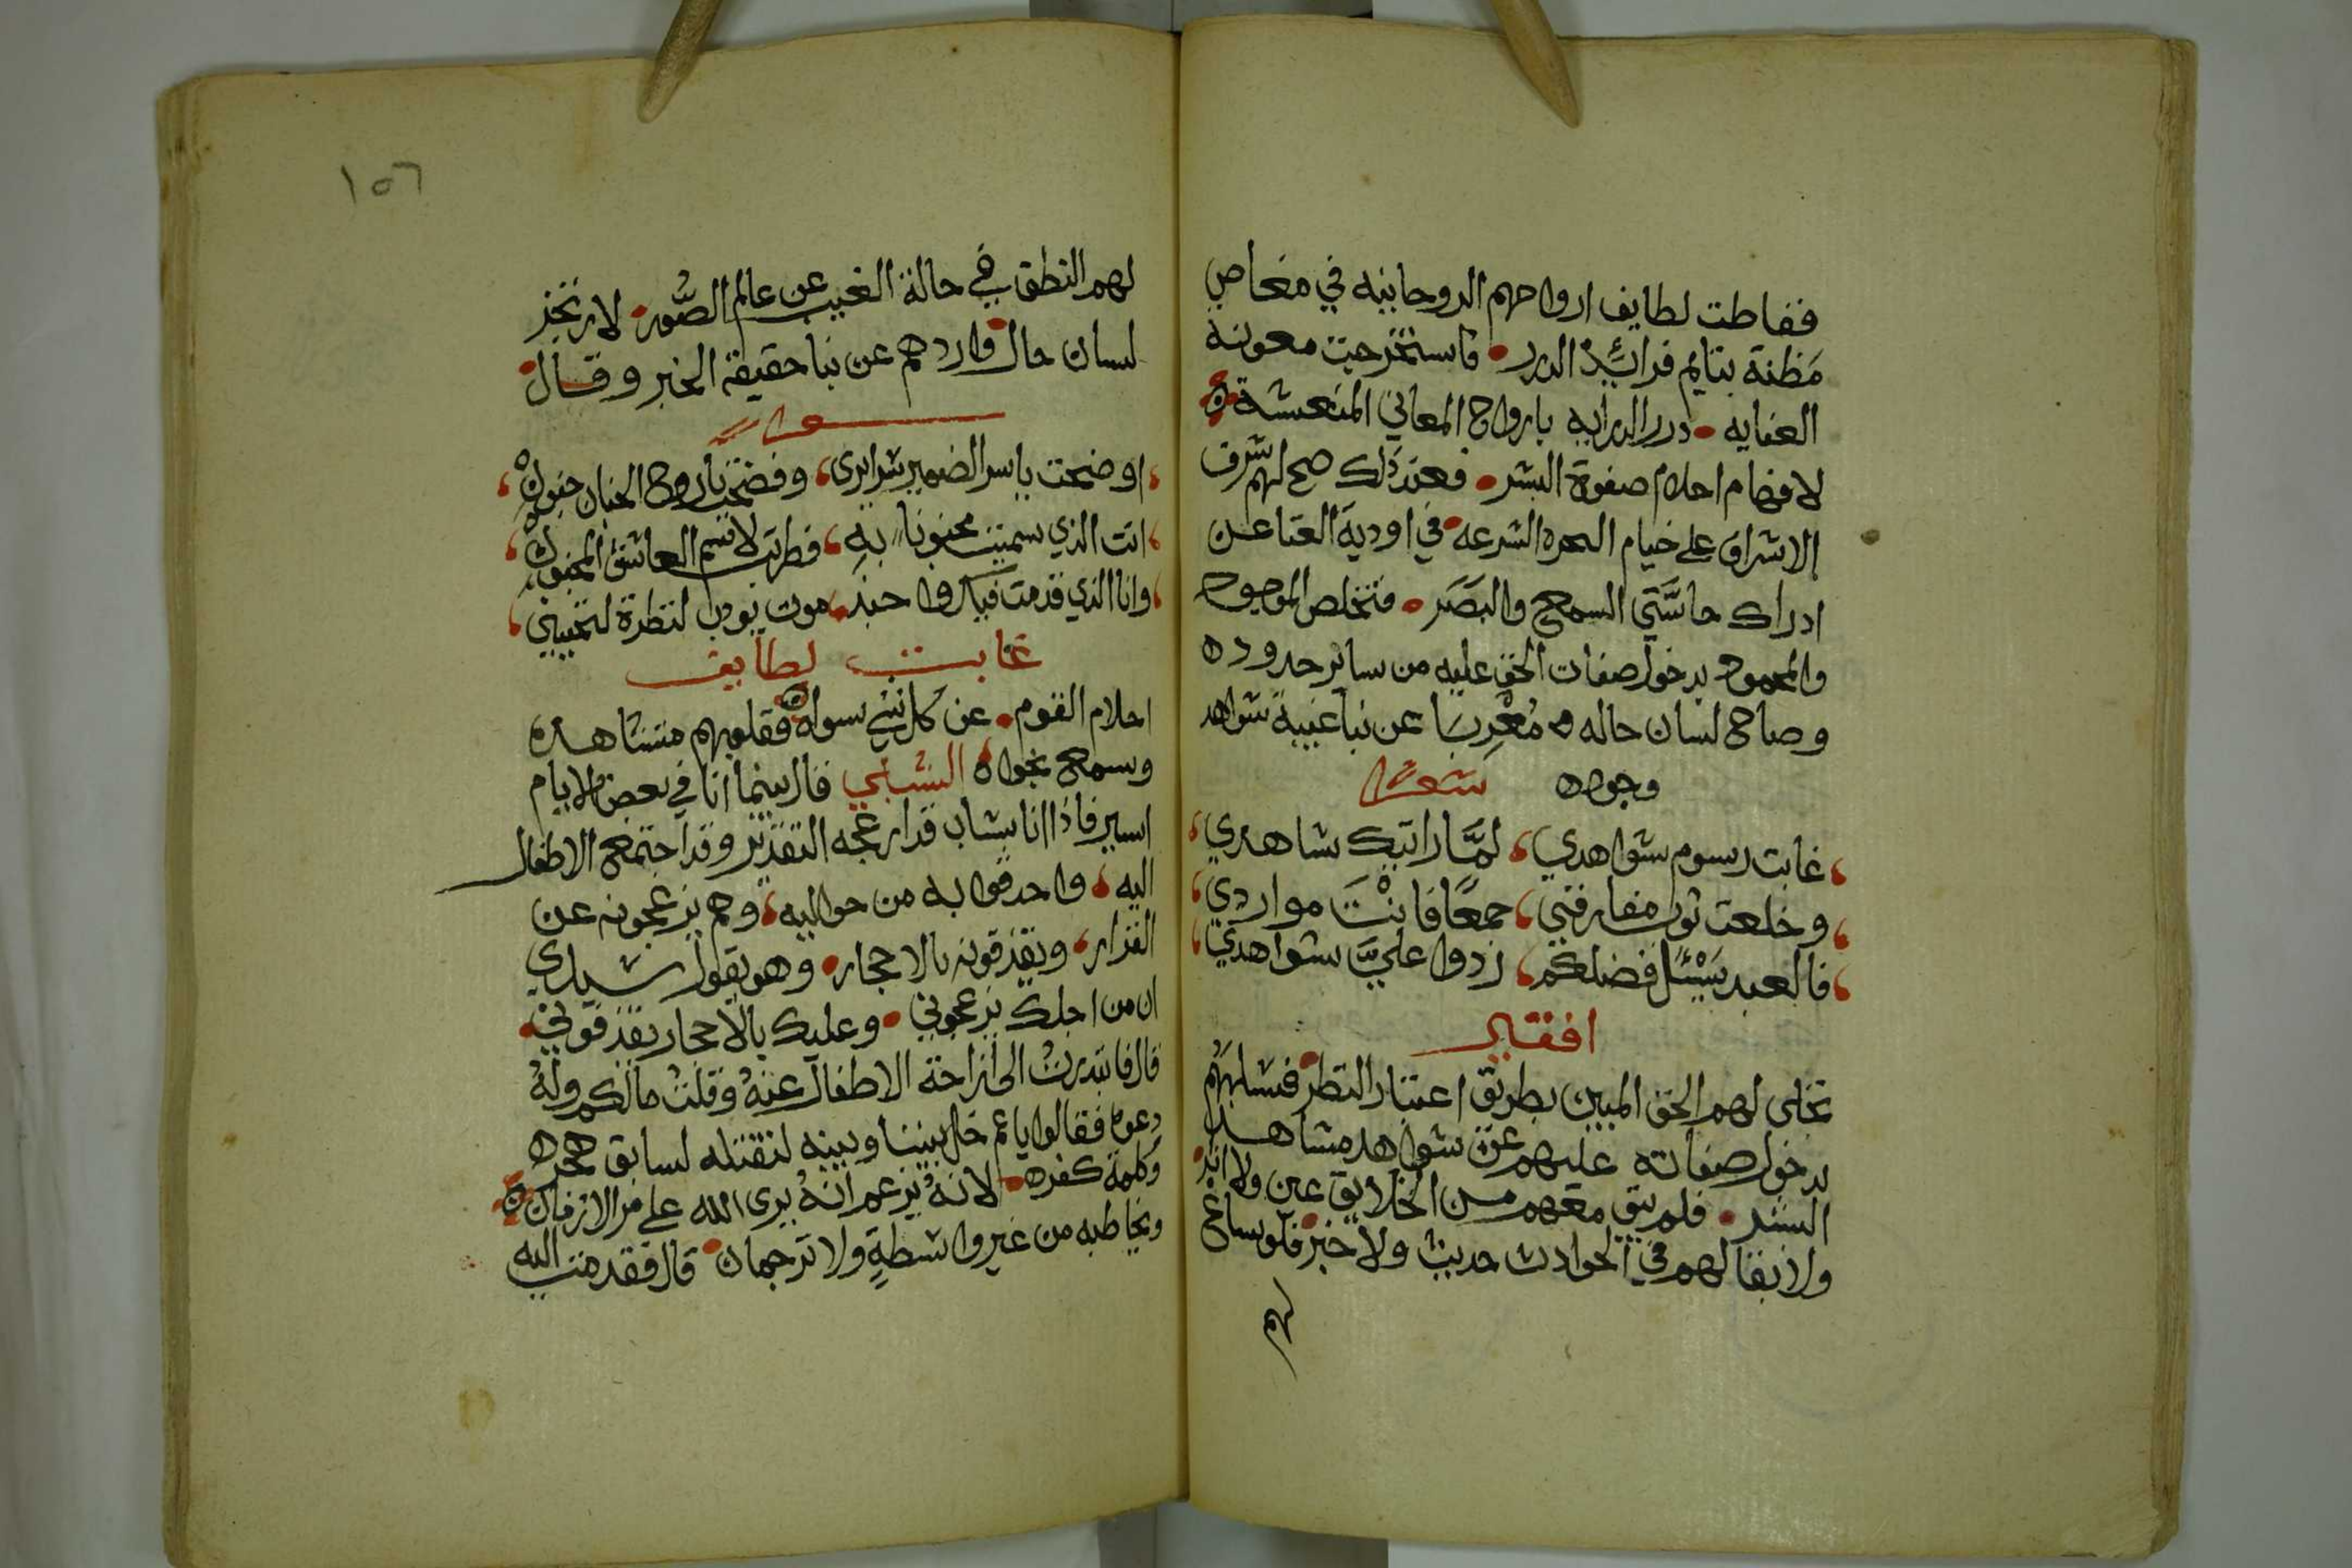 فغاطت لطايف ارواحهم الروحانيه في مغاص
مَظنة يتايم فرائد الدرر فاستخرجت معونة
العنايه درر الدرايه بارواح المعاني المنعشة
لافهام احلام صفوة البشر فعند ذلك صح لهم شرف
الاشراق على خيام الشرعه في اودية الفنا عن
ادراك حاسَّتَي السمع والبَصَر فتخلص الموجود
والمعدوم بدخول صفات الحق عليه من ساير حدوده
وصاح لسان حاله مُعْرِبًا عن نبا غيبة شواهد
وجوده شعر
غابت رسوم شواهدي لمَّا رايتك شاهدي
وخلعت ثوب مفارقتي جمعًا فانْتَ مواردي
فالعبد يَسْئَل فضلكم ردوا عليَّ شواهدي
افقير
تجلى لهم الحق المبين بطريق اعتبار النظر فسلبهُم
بدخول صفاته عليهم عن شواهد مشاهد
البشر فلم يبق معهم من الخلايق عين ولا اثر
ولا بقا لهم في الحوادث حديث ولا خبر فلو ساغ
لهم
١٥٦
لهم النطق في حالة الغيب عن عالم الصُّور لارتجز
لسان حال واردهم عن نبا حقيقة الخبر وقال
شعر
اوضحت ياسر الضمير سرايري وفضحت ياروح الجنان جنوني
انت الذي سميتني مجنونا به فطربت لاسم العاشق المجنون
وانا الذي قدمت فيك وا حبذ موت يووب لنظرة تحييني
غابت لطايف
احلام القوم عن كل شي سواه فقلوبهم مشاهده
وسمع نجواه الشبلي قال بينما انا في بعض الايام
اسير فاذا انا بشاب قد ازعجه التقدير وقد اجتمع الاطفال
اليه واحدقوا به من حواليه وهم يزعجونه عن
القرار ويقذقونه بالاحجار وهو يقول سيدي
ان من اجلك يزعجوني وعليك بالاحجار يقذقوني
قال فابتدرتُ الى ازاحة الاطفال عنهُ وقلتُ مالكم ولهُ
دعوه فقالوا ياعم خل بيننا وبينه لنقتله لسابق
وكلمة كفره لانهُ يزعم انهُ يرى الله على مر الازمان
ويخاطبه من غير واسطةٍ ولا ترجمان قال فقدمت اليه